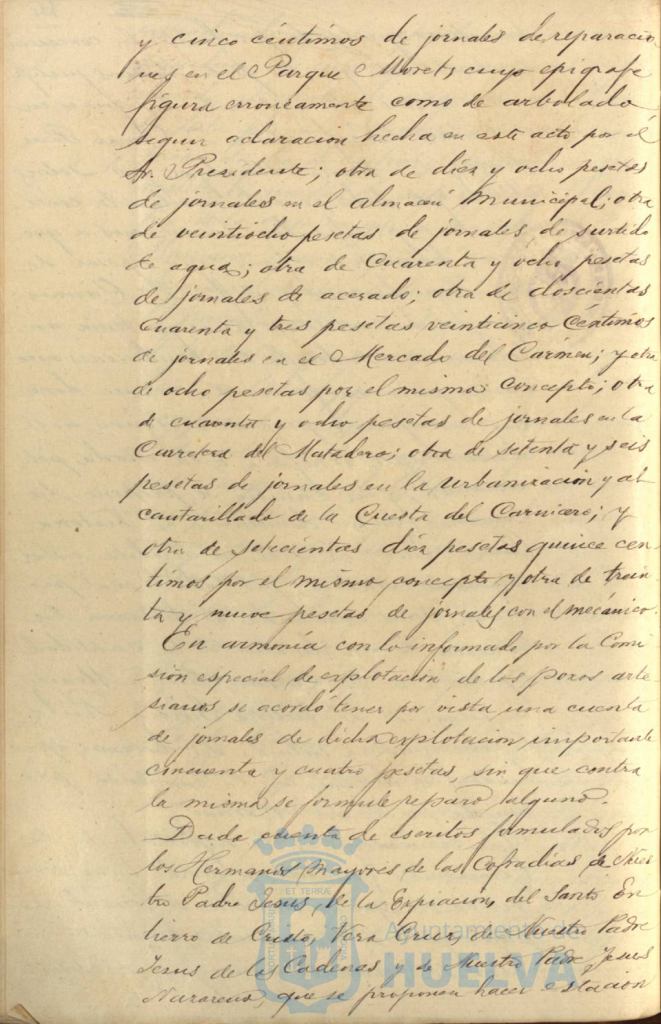 y cinco céntimos de jornales de reparacio
nes en el Parque Moret, cuyo epigrafe
figura erroneamente como de arbolado
segun aclaracion hecha en este acto por el
Sr. Presidente; otra de diez y ocho pesetas
de jornales en el Almacen Municipal; otra
de veintiocho pesetas de jornales de surtido
de agua; otra de Cuarenta y ocho pesetas
de jornales de acerado; otra de doscientas
Cuarenta y tres pesetas veinticinco Céntimos
de jornales en el Mercado del Cármen; y otra
de ocho pesetas por el mismo concepto; otra
de cuarenta y ocho pesetas de jornales en la
Carretera del Matadero; otra de setenta y seis
pesetas de jornales en la urbanizacion y al
cantarillado de la Cuesta del Carnicero; y
otra de setecientas diez pesetas quince cen
timos por el mismo concepto y otra de trein
ta y nueve pesetas de jornales con el mecánico.
En armonía con lo informado por la Comi
sión especial de explotación de los pozos arte
sianos se acordó tener por vista una cuenta
de jornales de dicha explotacion importante
cincuenta y cuatro pesetas, sin que contra
la misma se formule reparo alguno.
Dada cuenta de escritos formulados por
los Hermanos Mayores de las Cofradias de Nues
tro Padre Jesus, de la Expiacion, del Santo En
tierro de Cristo, Vera Cruz, de Nuestro Padre
Jesus de las Cadenas y de Nuestro Padre Jesus
Nazareno, que se proponen hacer estación
Ayuntamiento de
HUELVA